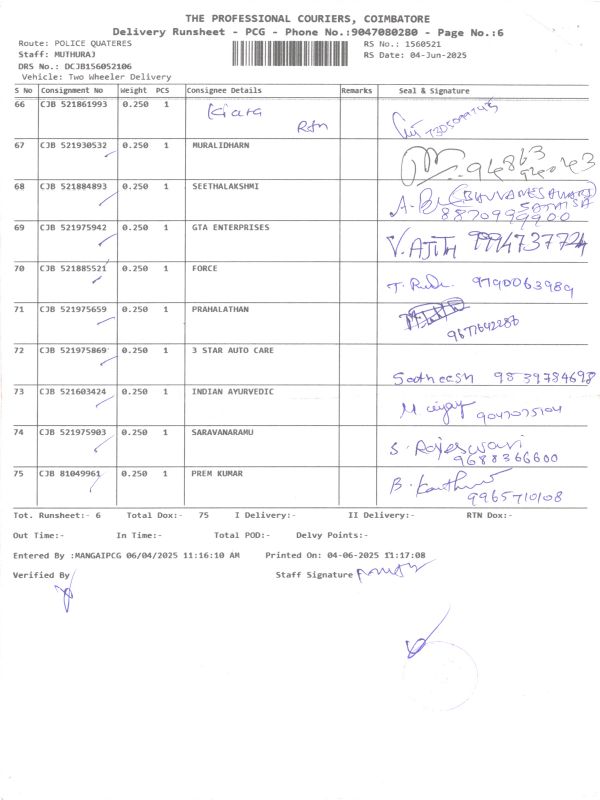 THE PROFESSIONAL COURIERS, COIMBATORE
Delivery Runsheet - PCG - Phone No.:9047080280 - Page No.:6
Route: POLICE QUATERES RS No.: 1560521
Staff: MUTHURAJ RS Date: 04-Jun-2025
DRS No.: DCJB156052106
Vehicle: Two Wheeler Delivery
S No Consignment No Weight PCS Consignee Details Remarks Seal & Signature
66 CJB 521861993 0.250 1 Kiara
Rtn
67 CJB 521930532 0.250 1 MURALIDHARN
68 CJB 521884893 0.250 1 SEETHALAKSHMI
8870999900
69 CJB 521975942 0.250 1 GTA ENTERPRISES
V. AJITH 9994737724
70 CJB 521885521 0.250 1 FORCE
9790063989
71 CJB 521975659 0.250 1 PRAHALATHAN
9677642286
72 CJB 521975869 0.250 1 3 STAR AUTO CARE
Sootheesh 9839784698
73 CJB 521603424 0.250 1 INDIAN AYURVEDIC
9047075104
74 CJB 521975903 0.250 1 SARAVANARAMU
S. Rajeswari
9688366600
75 CJB 81049961 0.250 1 PREM KUMAR
9965710108
Tot. Runsheet:- 6 Total Dox:- 75 I Delivery:- II Delivery:- RTN Dox:-
Out Time:- In Time:- Total POD:- Delvy Points:-
Entered By :MANGAIPCG 06/04/2025 11:16:10 AM Printed On: 04-06-2025 11:17:08
Verified By Staff Signature